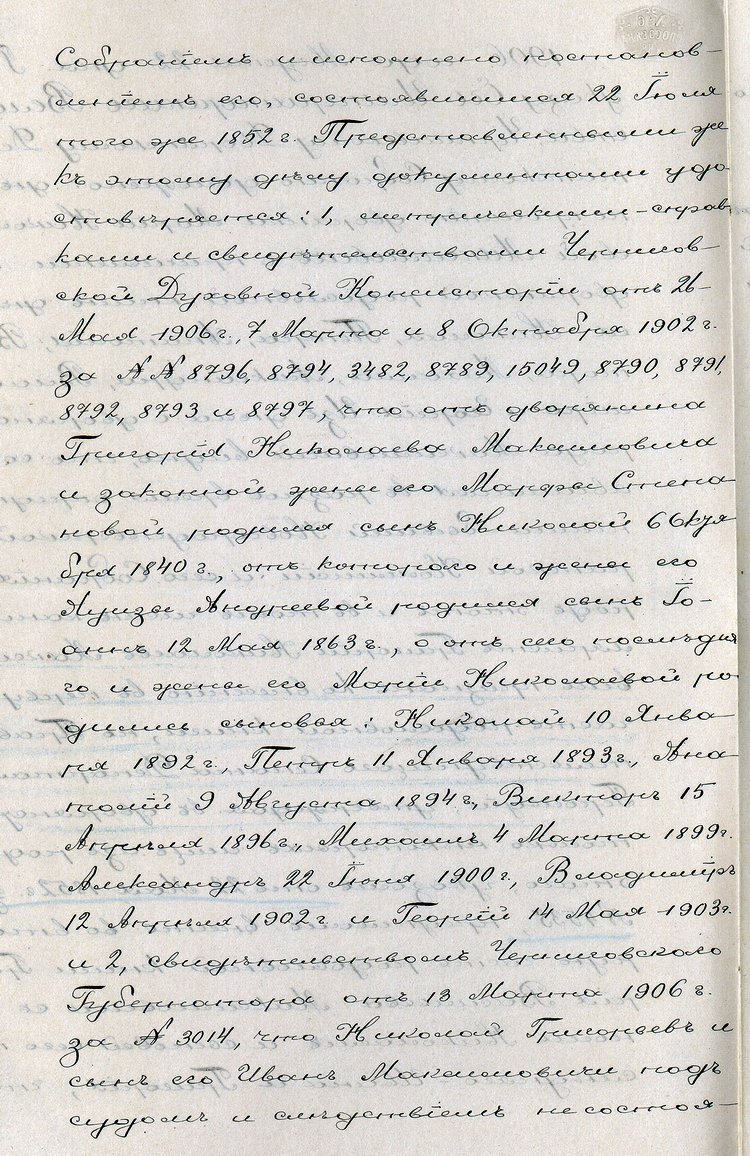 Собраніемъ и исполнено постанов-
леніемъ его, состоявшимся 22 Іюля
того же 1852 г. Представленными же
къ этому дѣлу документами удо-
стовѣряется: 1, метрическими-справ-
ками и свидѣтельствами Чернигов-
ской Духовной Консисторіи отъ 26-
Мая 1906 г., 7 Марта и 8 Октября 1902 г.
за №№ 8796, 8794, 3482, 8789, 15049, 8790, 8791,
8792, 8793 и 8797, что отъ дворянина
Григорія Николаева Максимовича
и законной жены его Марфы Степа-
новой родился сынъ Николай 6 Октя
бря 1840 г., отъ котораго и жены его
Луизы Андреевой родился сынъ Іо-
аннъ 12 Мая 1863 г., а отъ сего послѣдня
го и жены его Маріи Николаевой ро
дились сыновья: Николай 10 Янва-
ря 1892 г., Петръ 11 Января 1893 г., Ана
толій 9 Августа 1894 г., Викторъ 15
Апрѣля 1896 г., Михаилъ 4 Марта 1899 г.
Александръ 22 Іюня 1900 г., Владиміръ
12 Апрѣля 1902 г. и Георгій 14 Мая 1903 г.
и 2, свидѣтельствомъ Черниговскаго
Губернатора отъ 13 Марта 1906 г.
за № 3014, что Николай Григорьевъ и
сынъ его Иванъ Максимовичи подъ
судомъ и слѣдствіемъ не состоя-